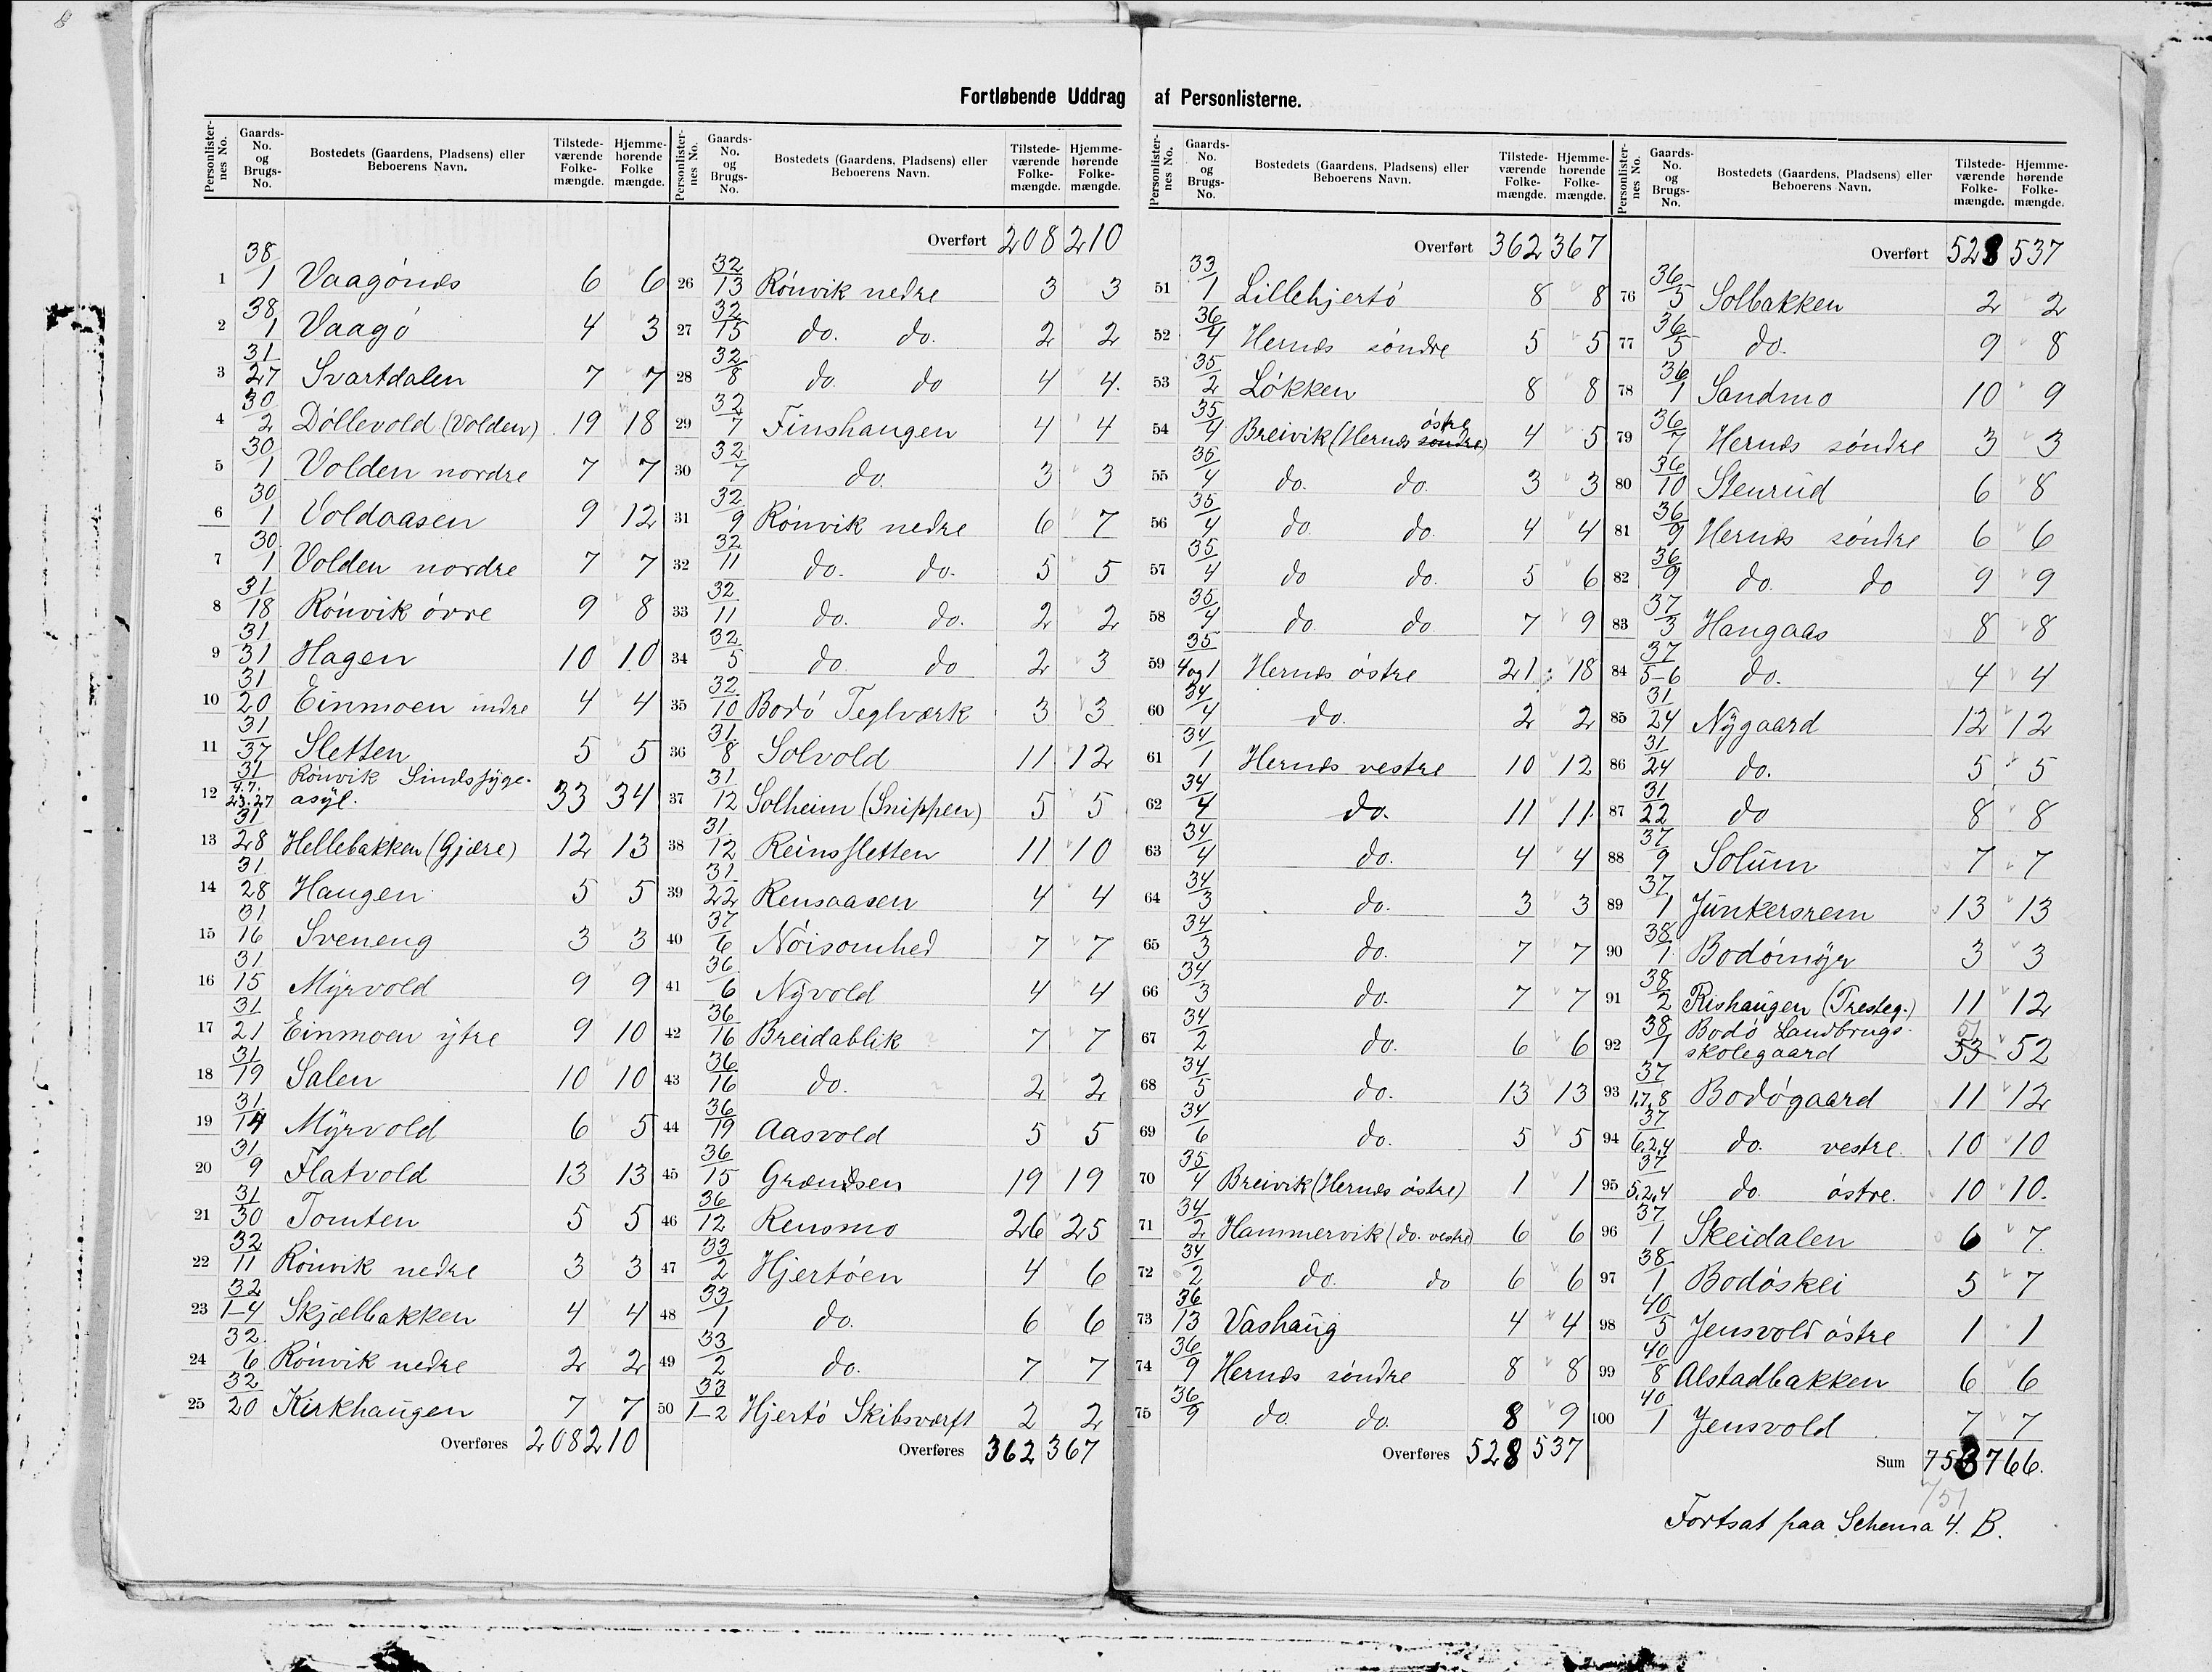 8
Fortløbende Uddrag af Personlisterne.
Personlisternes No. Gaards-No. og Brugs-No. Bostedets (Gaardens, Pladsens) eller Beboerens Navn. Tilstedeværende Folkemængde. Hjemmehørende Folkemængde.
1 38/1 Vaagønes 6 6
2 38/1 Vaagø 4 3
3 31/27 Svartdalen 7 7
4 30/2 Döllevold (Volden) 19 18
5 30/1 Volden nordre 7 7
6 30/1 Voldaasen 9 12
7 30/1 Volden nordre 7 7
8 31/18 Rönvik övre 9 8
9 31/31 Hagen 10 10
10 31/20 Einmoen indre 4 4
11 31/37 Sletten 5 5
12 31/4.7.23.27 Rönvik Sindssyge-
asyl. 33 34
13 31/28 Hellebakken (Gjære) 12 13
14 31/28 Haugen 5 5
15 31/16 Sveneng 3 3
16 31/15 Myrvold 9 9
17 31/21 Einmoen ytre 9 10
18 31/19 Salen 10 10
19 31/14 Myrvold 6 5
20 31/9 Flatvold 13 13
21 31/30 Tomten 5 5
22 32/11 Rönvik nedre 3 3
23 32/1-4 Skjælbakken 4 4
24 32/6 Rönvik nedre 2 2
25 32/20 Kirkhaugen 7 7
Overføres 208 210
Personlisternes No. Gaards-No. og Brugs-No. Bostedets (Gaardens, Pladsens) eller Beboerens Navn. Tilstedeværende Folkemængde. Hjemmehørende Folkemængde.
Overført 208 210
26 32/13 Rönvik nedre 3 3
27 32/15 do. do. 2 2
28 32/8 do do 4 4.
29 32/7 Finshaugen 4 4
30 32/7 do. 3 3
31 32/9 Rönvik nedre 6 7
32 32/11 do. do. 5 5
33 32/11 do. do. 2 2
34 32/5 do. do 2 3
35 32/10 Bodö Teglværk 3 3
36 31/8 Solvold 11 12
37 31/12 Solheim (Snippen) 5 5
38 31/12 Reinssletten 11 10
39 31/22 Rensaasen 4 4
40 37/6 Nöisomhed 7 7
41 36/6 Nyvold 4 4
42 36/16 Breidablik 7 7
43 36/16 do. 2 2
44 36/19 Aasvold 5 5
45 36/15 Grændsen 19 19
46 36/12 Rensmo 26 25
47 33/2 Hjertöen 4 6
48 33/1 do. 6 6
49 33/2 do. 7 7
50 33/1-2 Hjertö Skibsværft 2 2
Overføres 362 367
Personlisternes No. Gaards-No. og Brugs-No. Bostedets (Gaardens, Pladsens) eller Beboerens Navn. Tilstedeværende Folkemængde. Hjemmehørende Folkemængde.
Overført 362 367
51 33/1 Lillehjertö 8 8
52 36/4 Hernæs söndre 5 5
53 35/2 Lökken 8 8
54 35/4 Breivik (Hernæs söndre östre) 4 5
55 35/4 do. do. 3 3
56 35/4 do do. 4 4
57 35/4 do do. 5 6
58 35/4 do do 7 9
59 35/4 og 1 Hernæs östre 21 18
60 34/4 do. 2 2
61 34/1 Hernæs vestre 10 12
62 34/4 do. 11 11
63 34/4 do. 4 4
64 34/3 do. 3 3
65 34/3 do. 7 7
66 34/3 do. 7 7
67 34/2 do. 6 6
68 34/5 do. 13 13
69 34/6 do. 5 5
70 35/4 Breivik (Hernæs östre) 1 1
71 34/2 Hammervik (do. vestre) 6 6
72 34/2 do. do 6 6
73 36/13 Vashaug 4 4
74 36/9 Hernæs söndre 8 8
75 36/9 do. do. 8 9
Overføres 528 537
Personlisternes No. Gaards-No. og Brugs-No. Bostedets (Gaardens, Pladsens) eller Beboerens Navn. Tilstedeværende Folkemængde. Hjemmehørende Folkemængde.
Overført 528 537
76 36/5 Solbakken 2 2
77 36/5 do. 9 8
78 36/1 Sandmo 10 9
79 36/7 Hernæs söndre 3 3
80 36/10 Stenrud 6 8
81 36/9 Hernæs söndre 6 6
82 36/9 do. do 9 9
83 37/3 Haugaas 8 8
84 37/5-6 do. 4 4
85 31/24 Nygaard 12 12
86 31/24 do. 5 5
87 31/22 do 8 8
88 37/9 Solum 7 7
89 37/1 Junkersrem 13 13
90 38/1 Bodömyr 3 3
91 38/2 Rishaugen (Tresteg.) 11 12
92 38/1 Bodö Landbrugs-
skolegaard 53 51 52
93 37/1,7,8 Bodögaard 11 12
94 37/6,2,4 do. vestre 10 10
95 37/5,2,4 do. östre. 10 10.
96 37/1 Skeidalen 6 7.
97 38/1 Bodöskei 5 7
98 40/5 Jensvold östre 1 1
99 40/8 Alstadbakken 6 6
100 40/1 Jensvold 7 7
Sum 753 766.
751
Fortsat paa Schema 4. B.